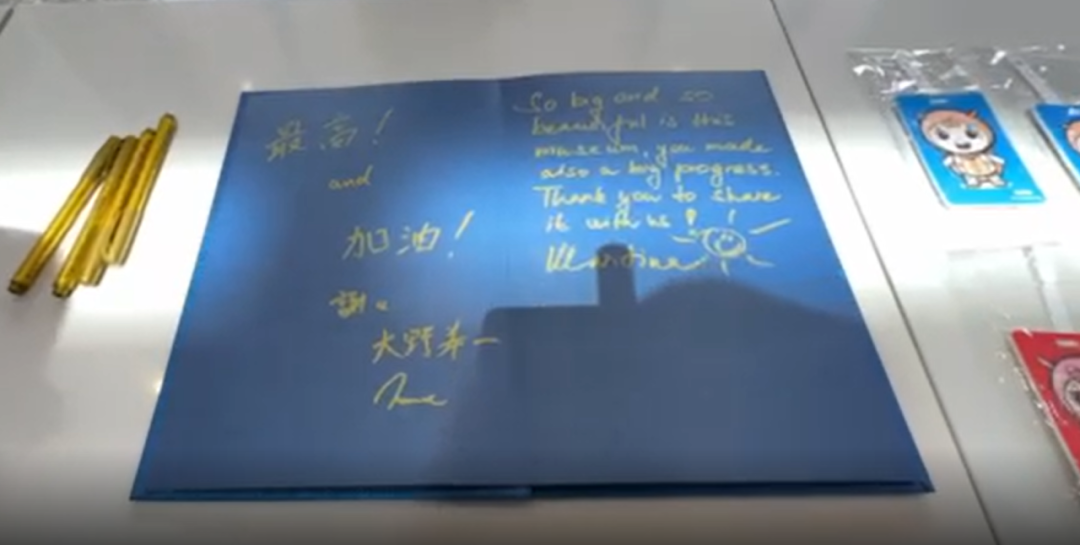 最高!
and
加油!
謝〃
大野
So big and so
beautiful is this
museum, you made
also a big progress.
Thank you to share
it with us !